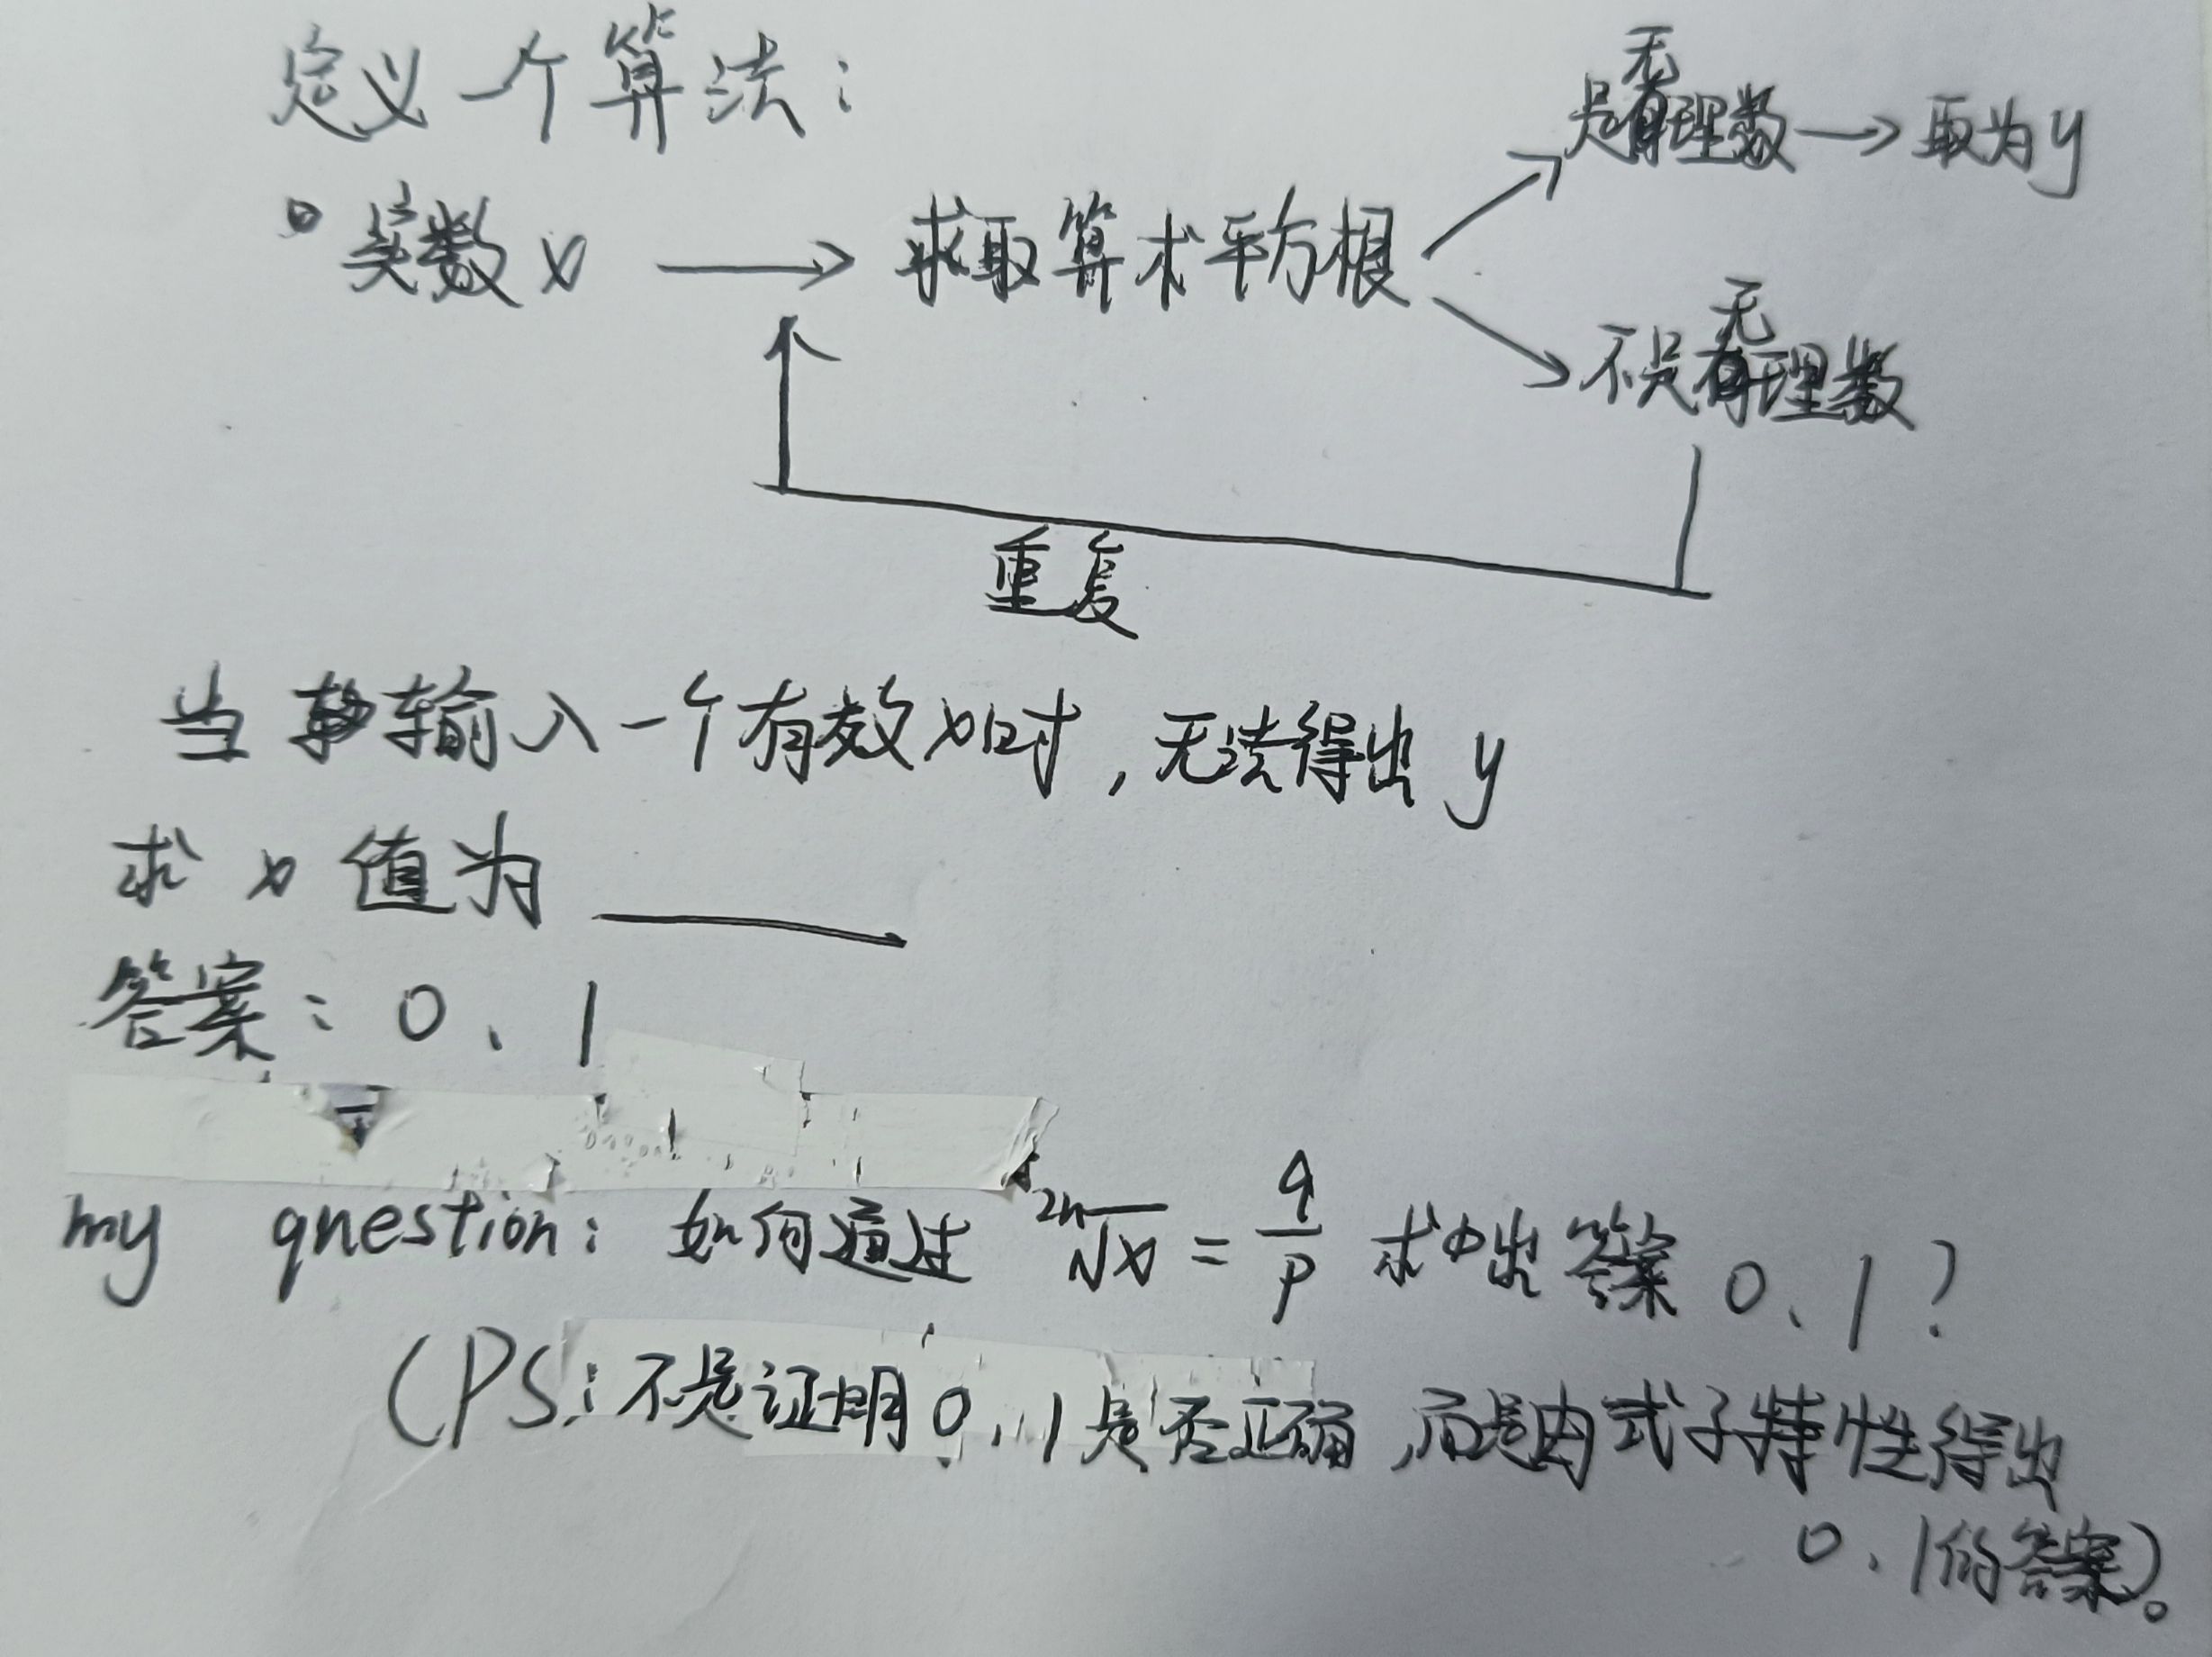 定义一个算法：
实数x → 求取算术平方根
是无理数 → 取为y
不是无理数
重复
当输入一个有效x时，无法得出y
求x值为
答案：0、1
my question：如何通过 ²ⁿ√x = q/p 求出答案0、1？
（PS：不是证明0、1是否正确，而是由式子特性得出
0、1的答案）。